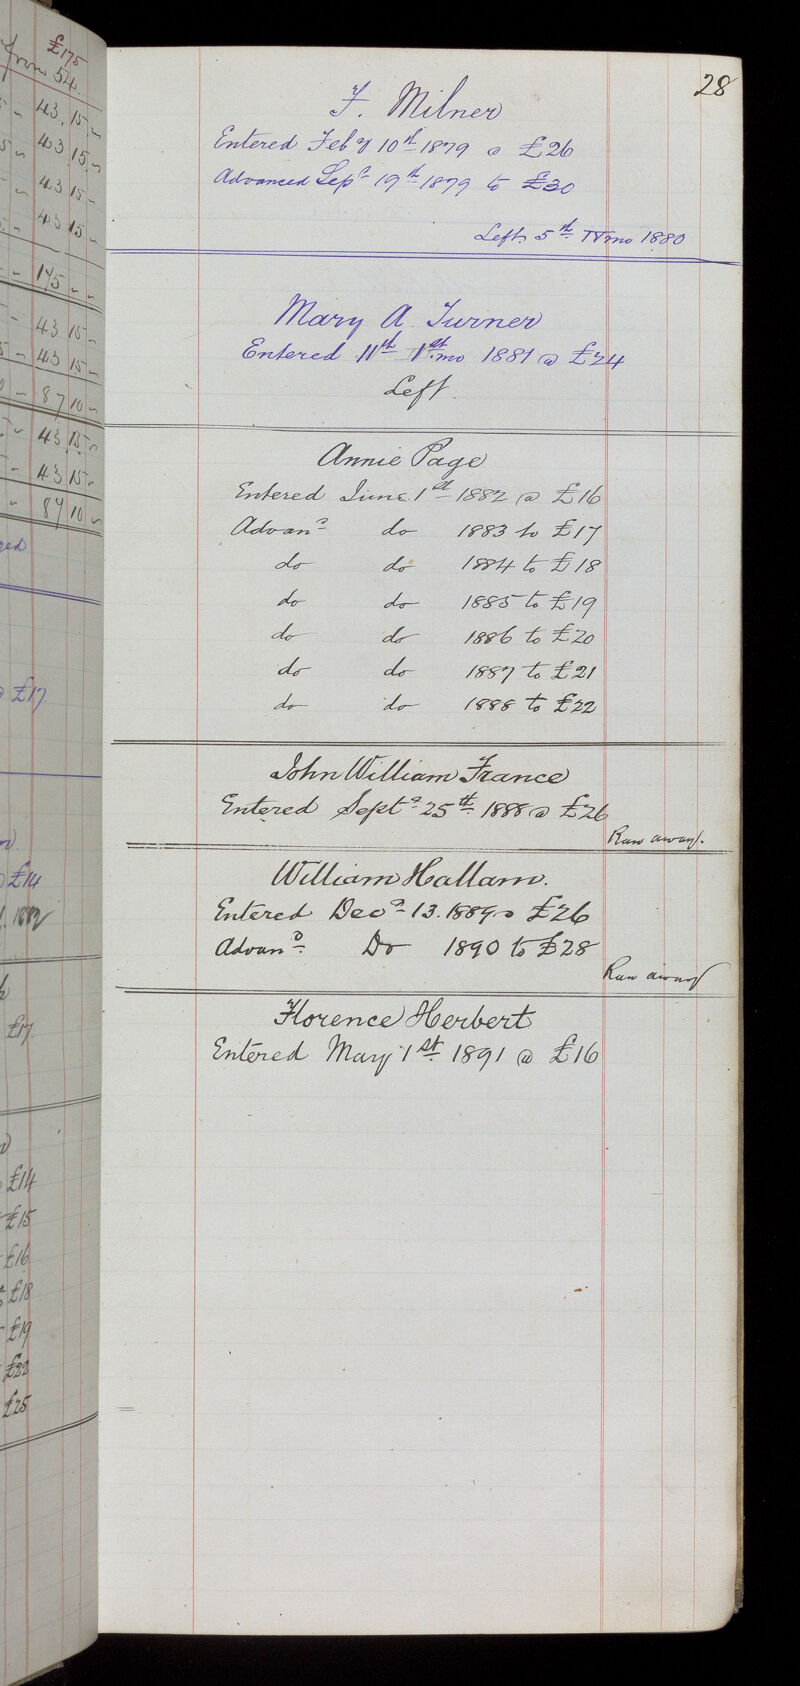 £175
from 54.
43.15.-
43.15.-
43.15-
43 15-
175 - -
43 15-
43 15-
87 10-
43.15-
43.15-
87 10-
£17.
£14
1882
£17.
£14
£15
£16
£18
£19
£22
£25
28
F. Milner
Entered Feby 10th 1879 @ £26
Advanced Sepr 19th 1879 to £30
Left 5th 11mo 1880
Mary A. Turner
Entered 11th 1st mo 1881 @ £24
Left.
Annie Page
Entered June 1st 1882 @ £16
Advand do 1883 to £17
do do 1884 to £18
do do 1885 to £19
do do 1886 to £20
do do 1887 to £21
do do 1888 to £22
John William France
Entered Septr 25th 1888 @ £26
Run away.
William Hallam.
Entered Decr 13. 1889 @ £26
Advand Do 1890 to £28
Run away
Florence Herbert
Entered May 1st 1891 @ £16